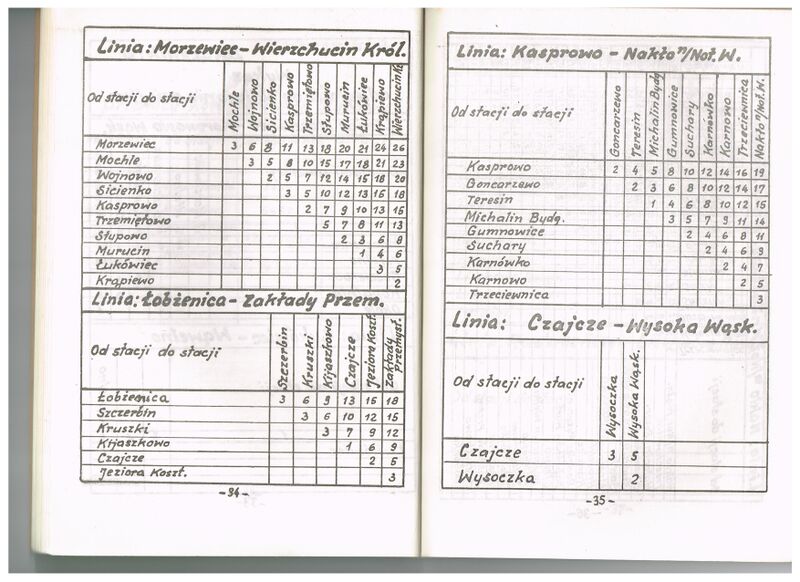 Linia: Morzewiec – Wierzchucin Król.
Od stacji do stacji Mochle Wojnowo Sicienko Kasprowo Trzemiętowo Słupowo Murucin Łukówiec Krąpiewo Wierzchucin K.
Morzewiec 3 6 8 11 13 18 20 21 24 26
Mochle 3 5 8 10 15 17 18 21 23
Wojnowo 2 5 7 12 14 15 18 20
Sicienko 3 5 10 12 13 16 18
Kasprowo 2 7 9 10 13 15
Trzemiętowo 5 7 8 11 13
Słupowo 2 3 6 8
Murucin 1 4 6
Łukówiec 3 5
Krąpiewo 2
Linia: Łobżenica – Zakłady Przem.
Od stacji do stacji Szczerbin Kruszki Kijaszkowo Czajcze Jeziora Koszt. Zakłady Przemysł.
Łobżenica 3 6 9 13 16 18
Szczerbin 3 6 10 12 15
Kruszki 3 7 9 12
Kijaszkowo 1 6 9
Czajcze 2 5
Jeziora Koszt. 3
-34-
Linia: Kasprowo – Nakło n/Not. W.
Od stacji do stacji Goncarzewo Teresin Michalin Bydg. Gumnowice Suchary Karnówko Karnowo Trzeciewnica Nakło n/Not. W.
Kasprowo 2 4 5 8 10 12 14 16 19
Goncarzewo 2 3 6 8 10 12 14 17
Teresin 1 4 6 8 10 12 15
Michalin Bydg. 3 5 7 9 11 14
Gumnowice 2 4 6 8 11
Suchary 2 4 6 9
Karnówko 2 4 7
Karnowo 2 5
Trzeciewnica 3
Linia: Czajcze – Wysoka Wąsk.
Od stacji do stacji Wysoczka Wysoka Wąsk.
Czajcze 3 5
Wysoczka 2
-35-